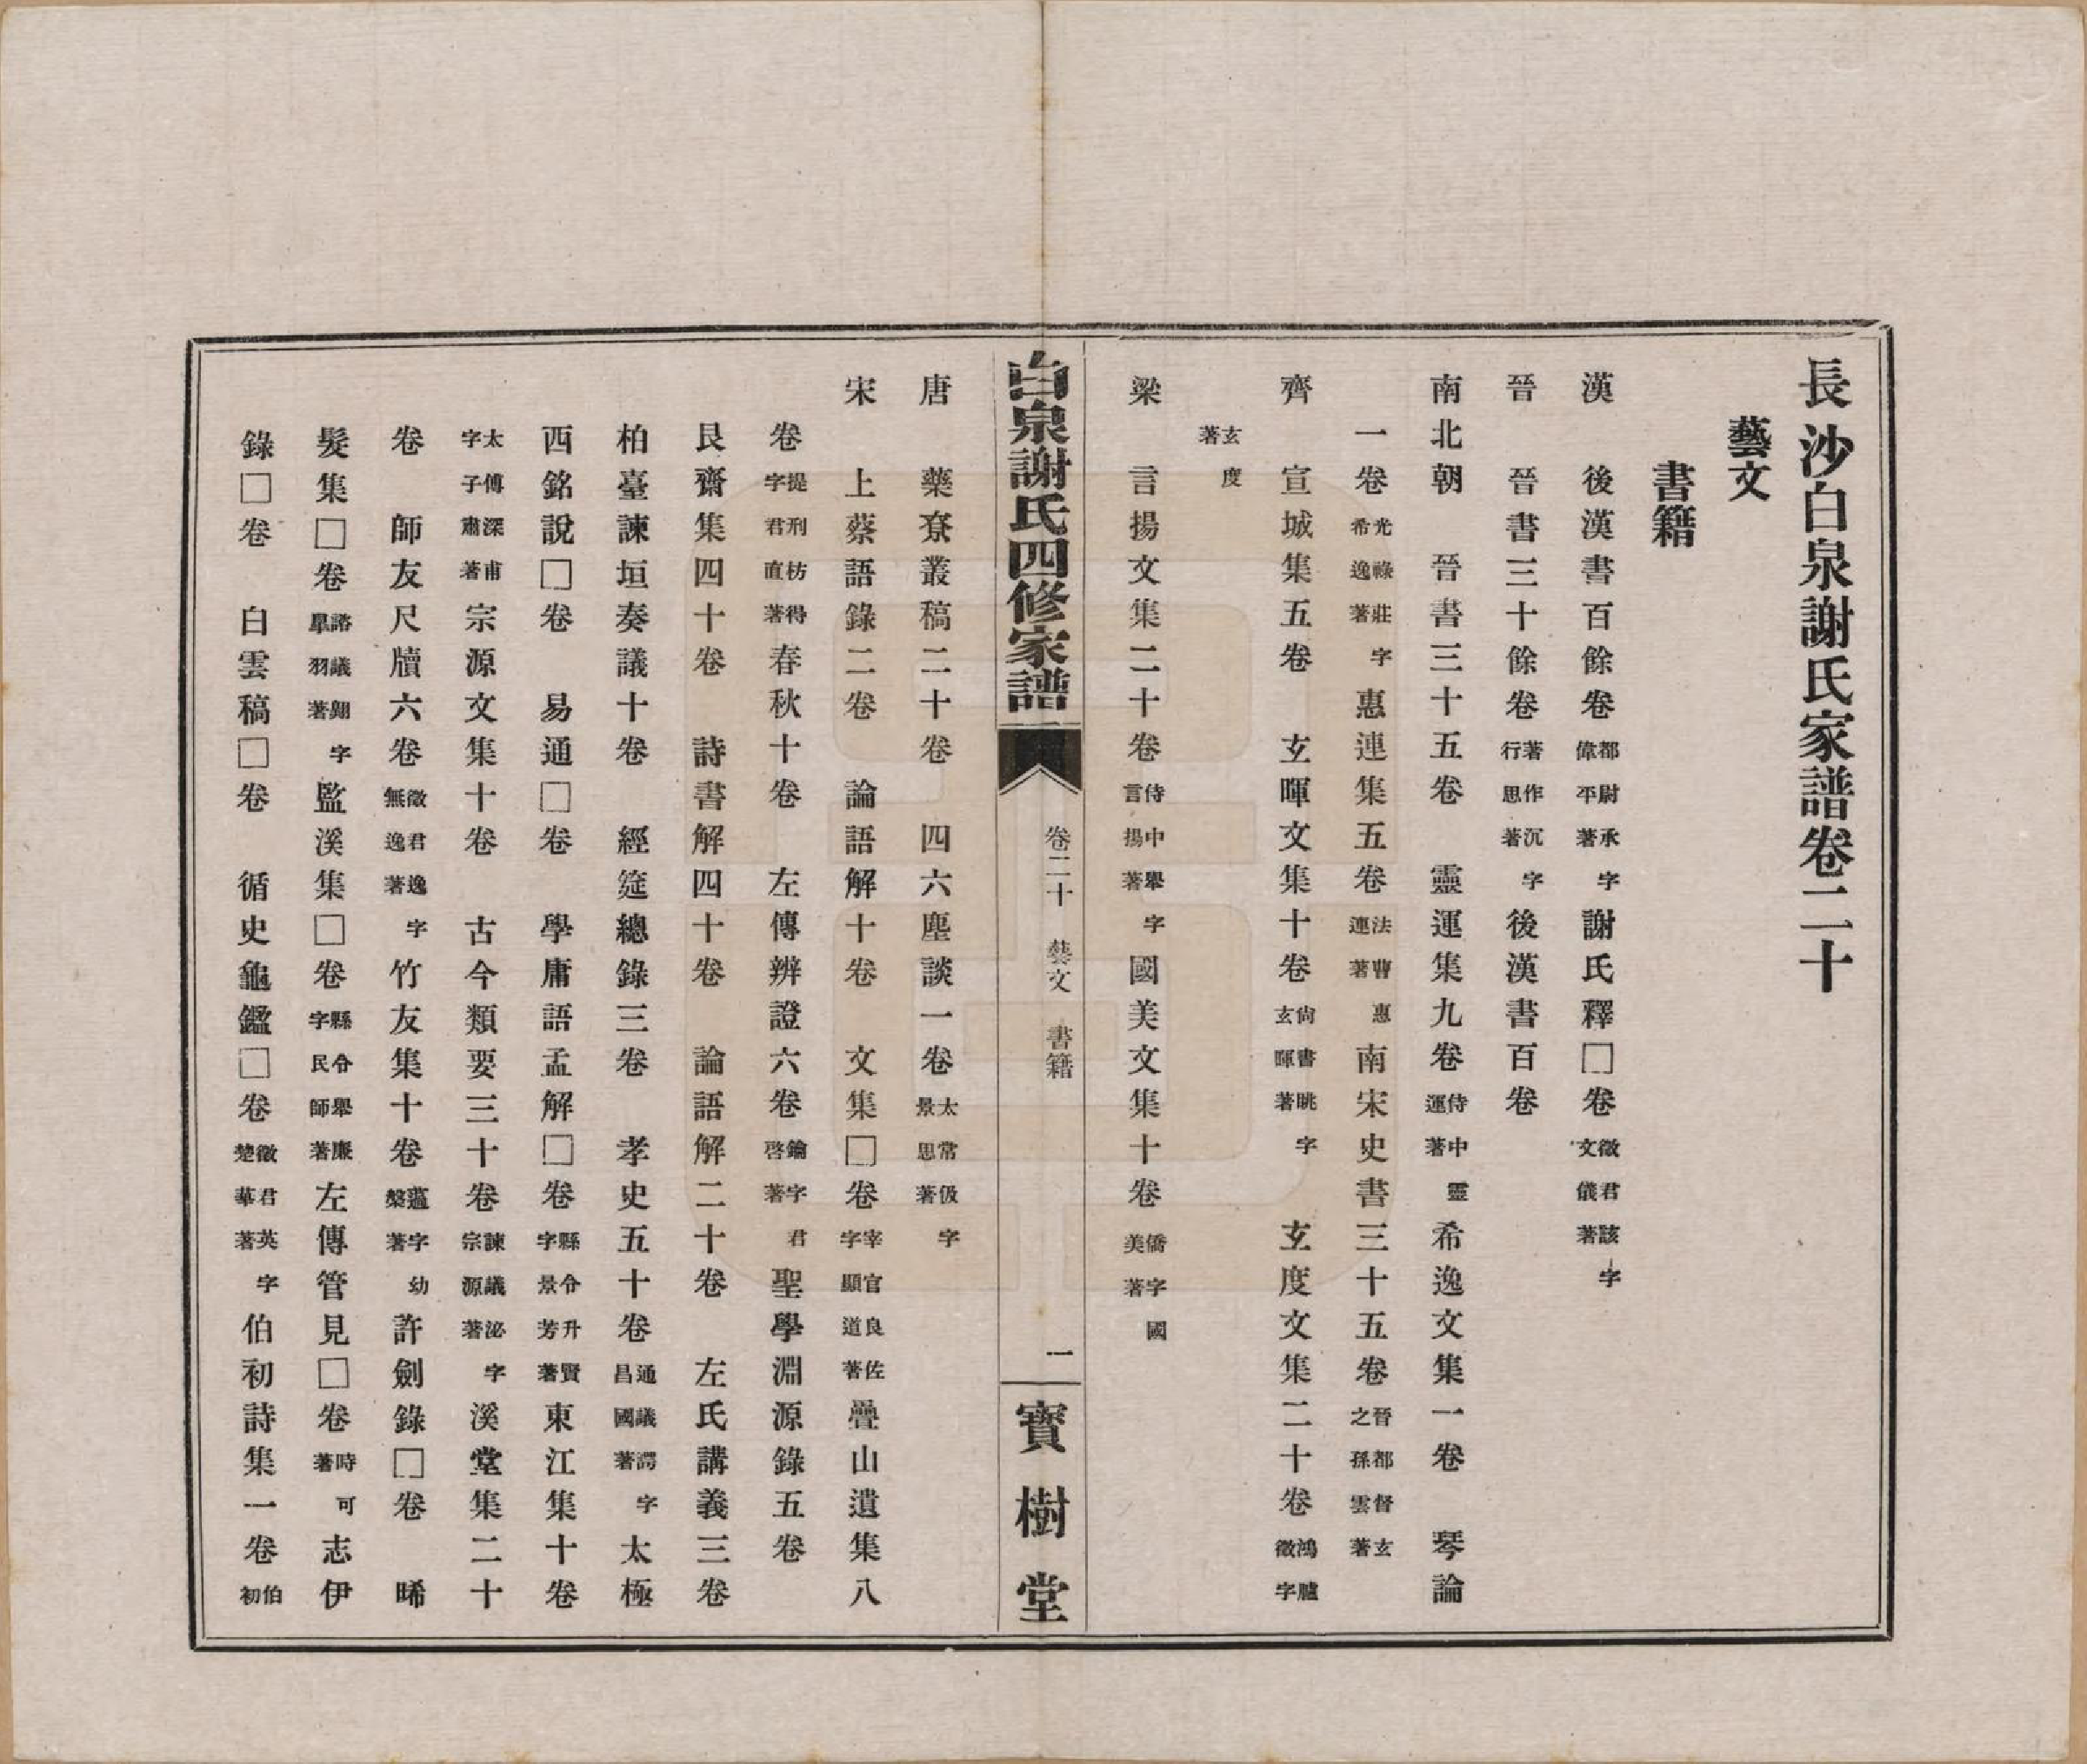 長沙白泉謝氏家譜卷二十
藝文
書籍
漢 後漢書百餘卷 都尉承字偉平著 謝氏釋□卷 徵君該字文儀著
晉 晉書三十餘卷 著作沉字行思著 後漢書百卷
南北朝 晉書三十五卷 靈運集九卷 侍中靈運著 希逸文集一卷 琴論
一卷 光祿莊字希逸著 惠連集五卷 法曹惠連著 南宋史書三十五卷 晉都督玄之孫雲著
齊 宣城集五卷 玄暉文集十卷 尚書眺字玄暉著 玄度文集二十卷 鴻臚徵字
玄度著
梁 言揚文集二十卷 侍中舉字言揚著 國美文集十卷 僑字國美著
白泉謝氏四修家譜 卷二十 藝文 書籍 一 寶樹堂
唐 藥寮叢稿二十卷 四六塵談一卷 太常伋字景思著
宋 上蔡語錄二卷 論語解十卷 文集□卷 宰官良佐字顯道著 疊山遺集八
卷 提刑枋得字君直著 春秋十卷 左傳辨證六卷 鑰字君啓著 聖學淵源錄五卷
艮齋集四十卷 詩書解四十卷 論語解二十卷 左氏講義三卷
柏臺諫垣奏議十卷 經筵總錄三卷 孝史五十卷 通議諤字昌國著 太極
西銘說□卷 易通□卷 學庸語孟解□卷 縣令升賢字景芳著 東江集十卷
太傅深甫字子肅著 宗源文集十卷 古今類要三十卷 諫議泌字宗源著 溪堂集二十
卷 師友尺牘六卷 徵君逸字無逸著 竹友集十卷 薖字幼槃著 許劍錄□卷 晞
髮集□卷 諮議翱字臯羽著 監溪集□卷 縣令舉廉字民師著 左傳管見□卷 時可著 志伊
錄□卷 白雲稿□卷 循史龜鑑□卷 徵君英字楚華著 伯初詩集一卷 伯初